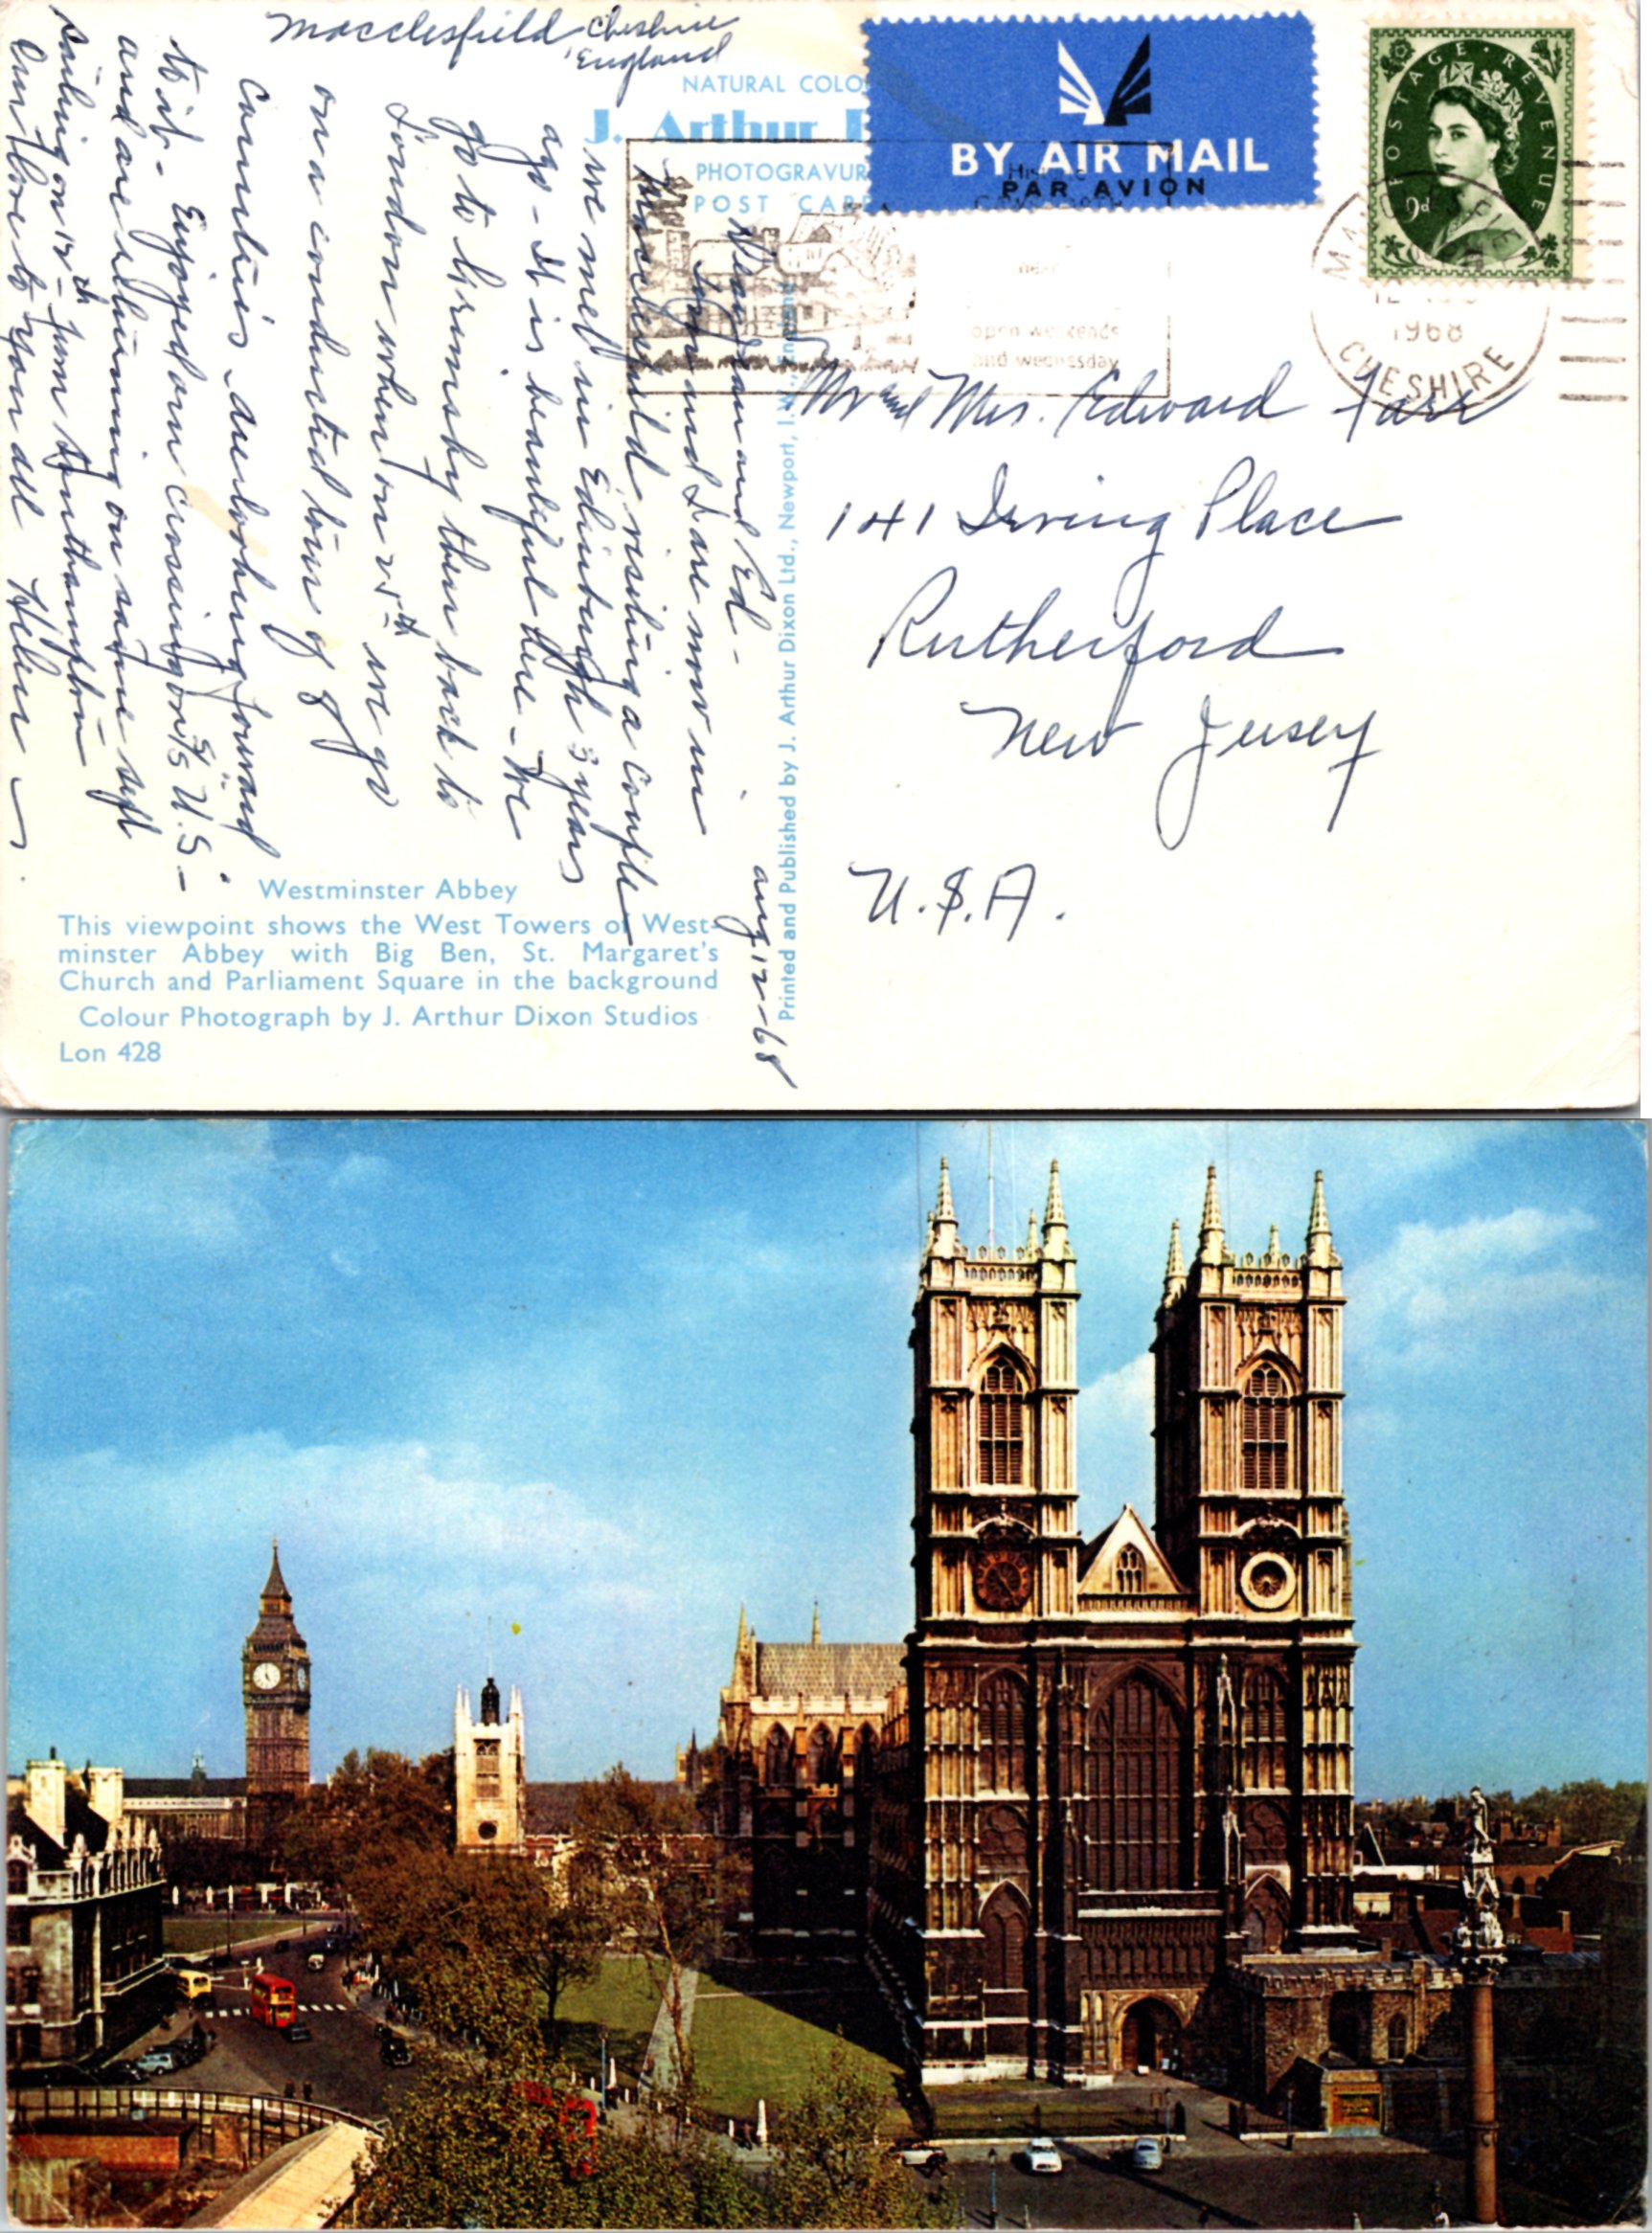 Macclesfield Cheshire
England
NATURAL COLO
J. Arthur
PHOTOGRAVUR
POST CARD
BY AIR MAIL
PAR AVION
POSTAGE REVENUE
9d
1968
CHESHIRE
open weekends
and wednesday
Aug 12-68
and Ed -
and I are now in
Macclesfield visiting a couple
we met in Edinburgh 3 years
ago - It is beautiful here - We
go to Grimsby then back to
London when on 25th we go
on a conducted tour of 8
countries, are looking forward
to it - Enjoyed our crossing on SS U.S -
and are returning on same ship
sailing on 12th from Southampton
Our love to you all Helen
Mr and Mrs. Edward Farr
141 Irving Place
Rutherford
New Jersey
U.S.A.
Printed and Published by J. Arthur Dixon Ltd., Newport, I.W., England
Westminster Abbey
This viewpoint shows the West Towers of West-
minster Abbey with Big Ben, St. Margaret's
Church and Parliament Square in the background
Colour Photograph by J. Arthur Dixon Studios
Lon 428